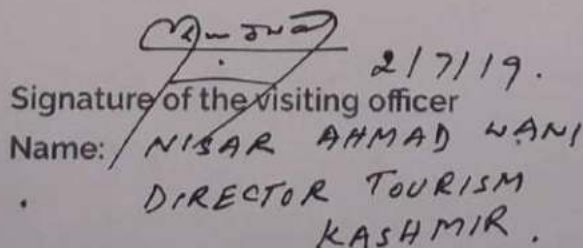 2/7/19.
Signature of the visiting officer
Name: NISAR AHMAD WANI
DIRECTOR TOURISM
KASHMIR.